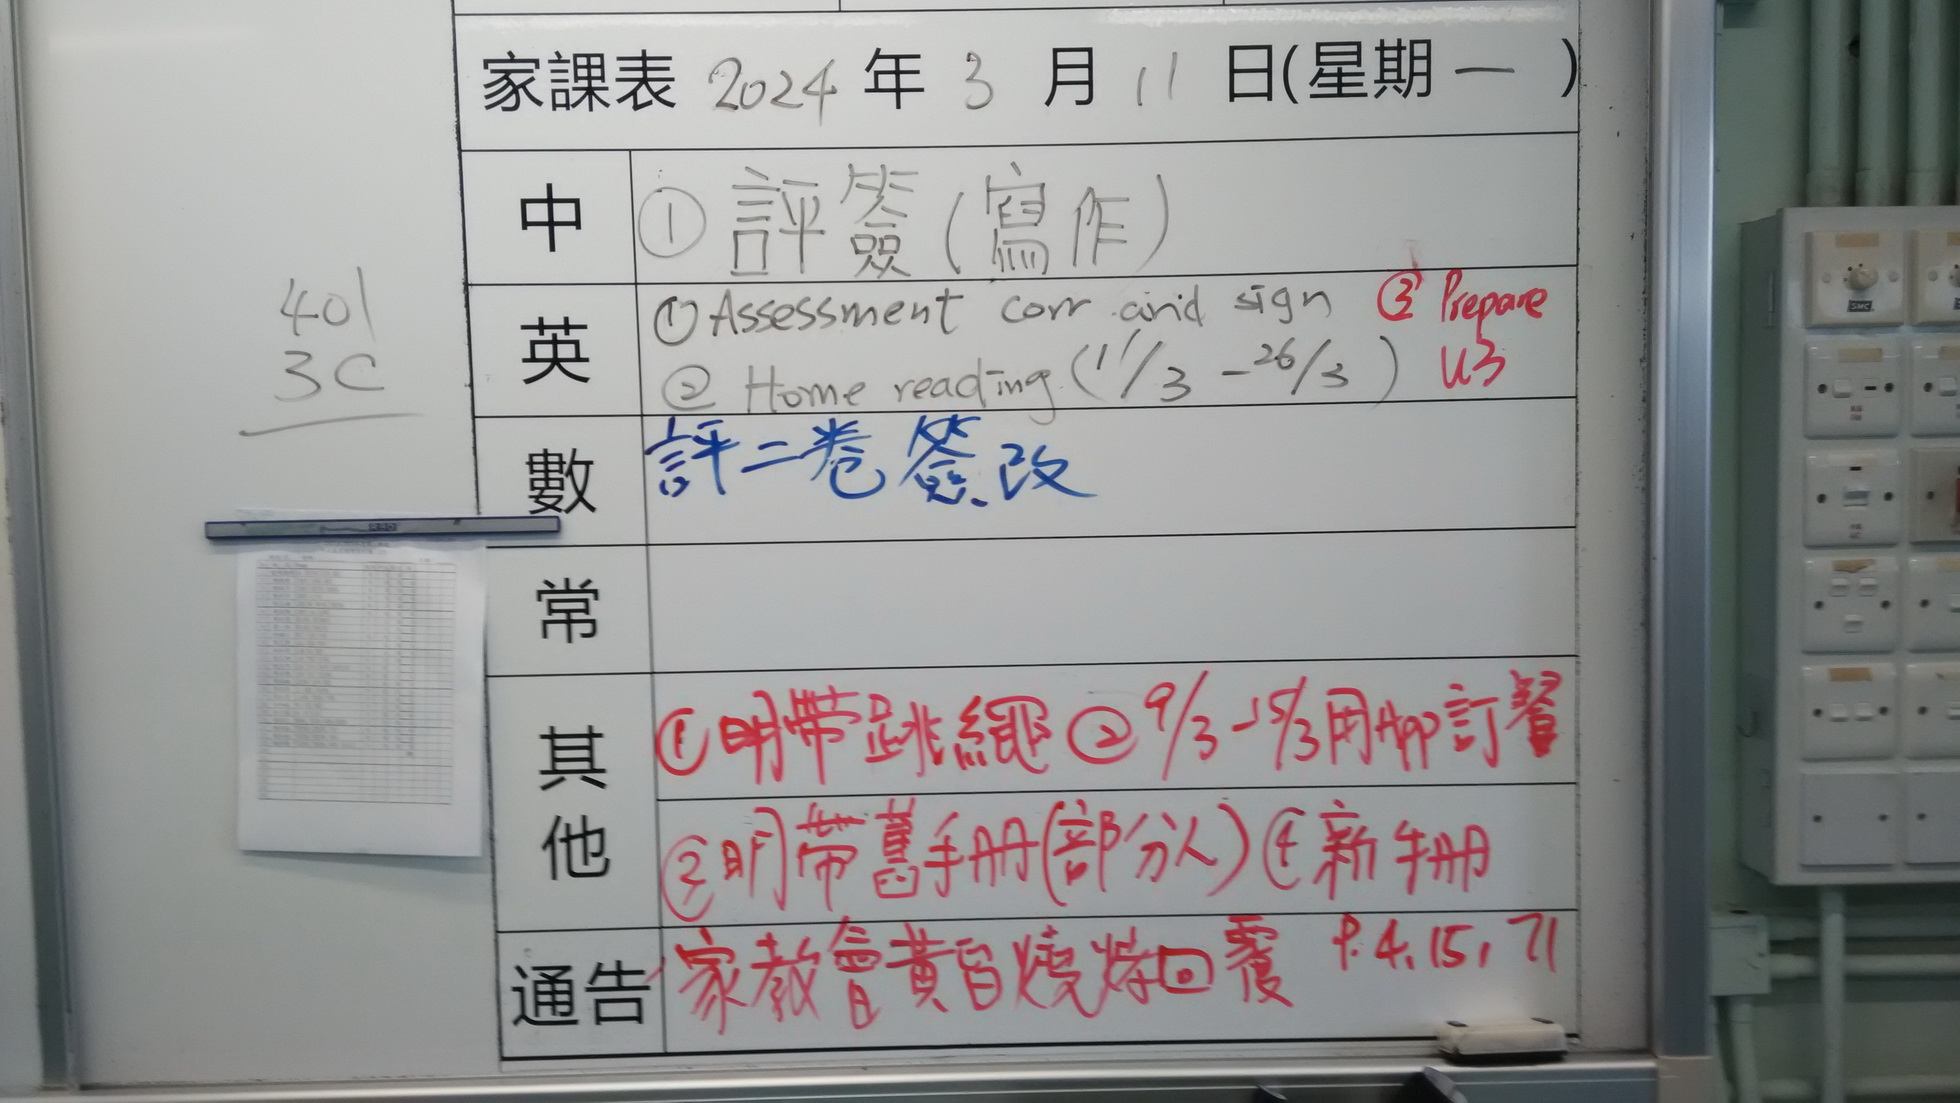 家課表 2024 年 3 月 11 日(星期 一 )
中 ① 評簽(寫作)
英 ① Assessment corr and sign ③ Prepare U3
② Home reading (11/3 - 26/3)
401
3C
數 評二卷簽改
常
其他 ① 明帶跳繩 ② 9/3 - 15/3 用App訂餐
③ 明帶舊手册(部分人) ④ 新手册 P.4, 15, 71
通告 家教會黃昏燒烤回覆